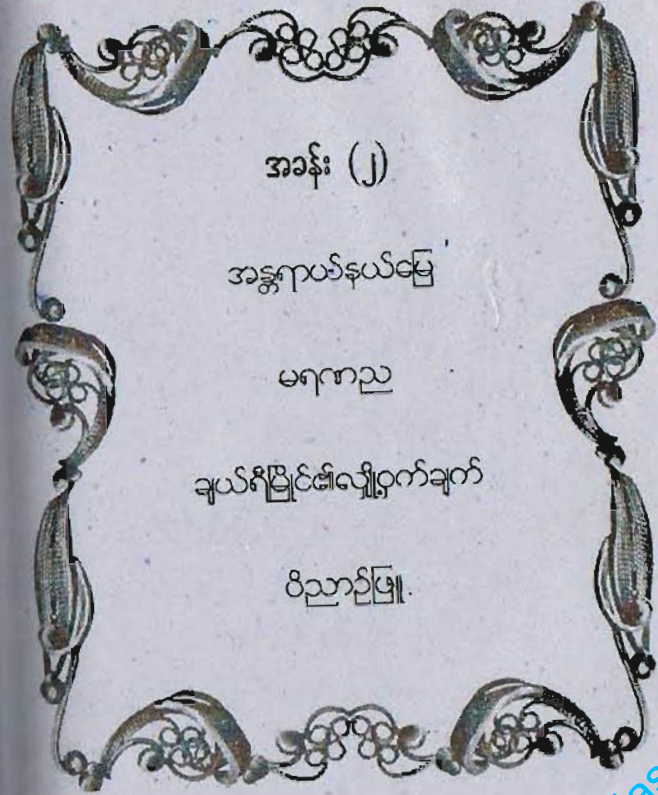 အခန်း (၂)
အန္တရာယ်နယ်မြေ
မရဏည
ချယ်ရီမြိုင်၏လျှို့ဝှက်ချက်
ဝိညာဉ်ဖြူ